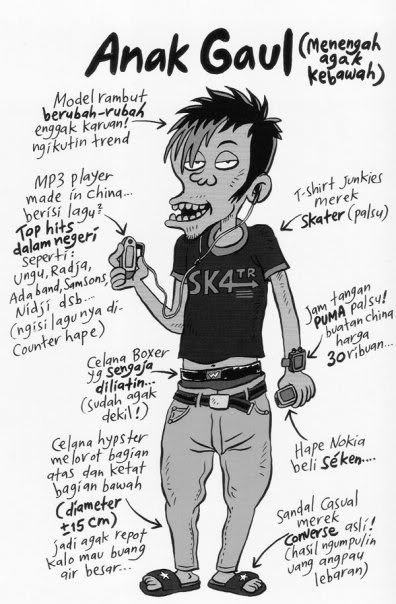 Anak Gaul (Menengah
agak
kebawah)
Model rambut
berubah-rubah
enggak karuan!
ngikutin trend
MP3 player
made in China...
berisi lagu²
Top hits
dalam negeri
seperti:
Ungu, Radja,
Adaband, Samsons,
Nidji dsb....
(ngisi lagunya di-
Counter hape)
T-shirt Junkies
merek
Skater (palsu)
SK4TR
Jam tangan
PUMA palsu!
buatan china
harga
30 ribuan...
Celana Boxer
yg sengaja
diliatin...
(sudah agak
dekil!)
Celana hypster
melorot bagian
atas dan ketat
bagian bawah
(diameter
±15 cm)
jadi agak repot
kalo mau buang
air besar...
Hape Nokia
beli séken....
Sandal Casual
merek
Converse asli!
(hasil ngumpulin
uang angpau
lebaran)